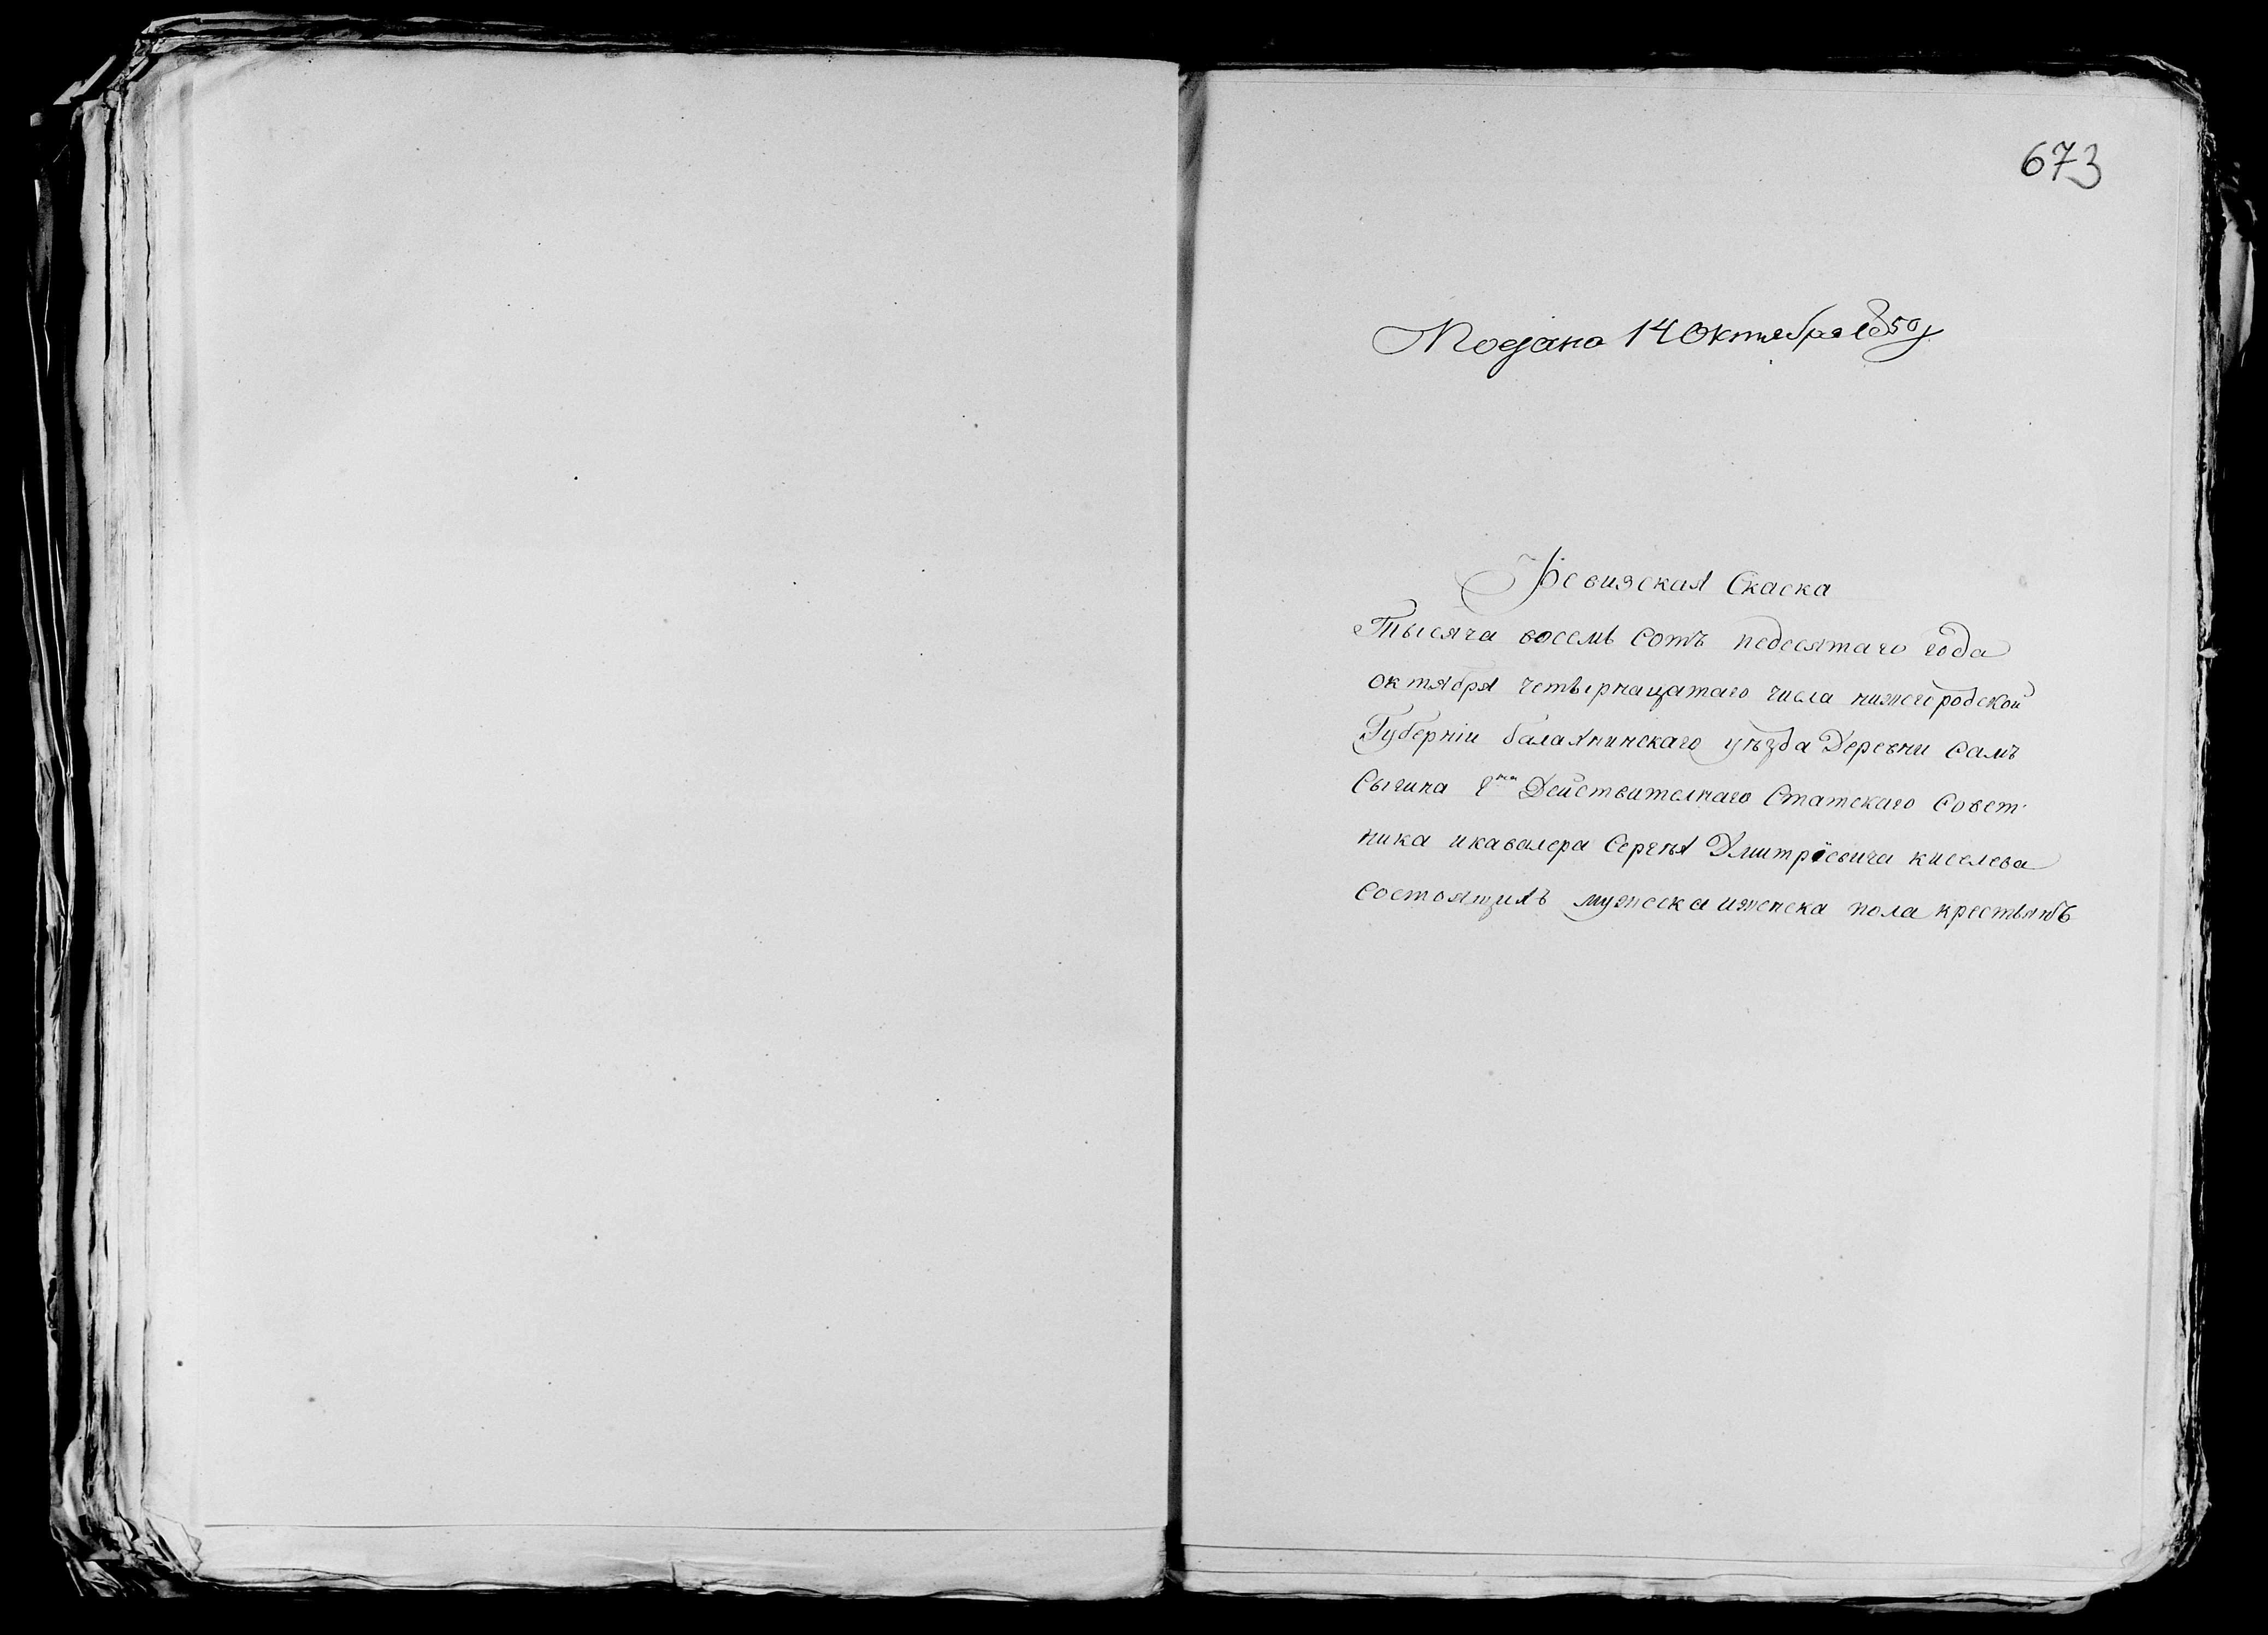 673
Подано 14 Октября 1850 г
Ревизская Скаска
Тысяча восемь Сотъ педесятаго года
октября четырнацатаго числа нижегородской
Губерніи балахнинскаго уѣзда Деревни Самъ
Сыгина Г-на Действителнаго Статскаго Совет-
ника икавалера Сергѣя Дмитріевича киселева
Состоящихъ мужеска иженска пола крестьянъ